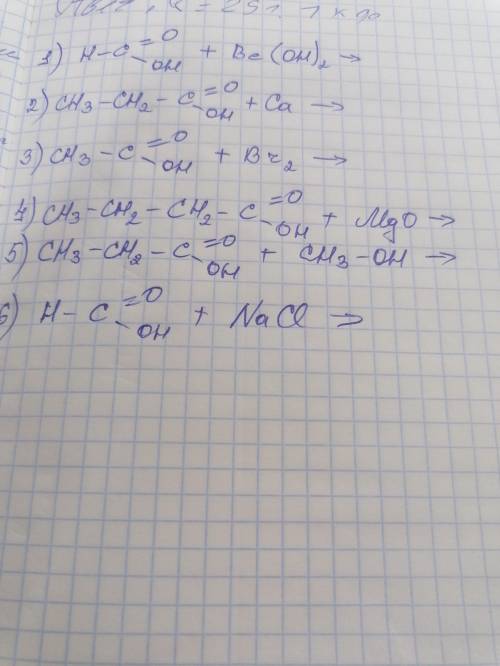 1) H-C=O-OH + Be(OH)2 →
2) CH3-CH2-C=O-OH + Ca →
3) CH3-C=O-OH + Br2 →
4) CH3-CH2-CH2-C=O-OH + MgO →
5) CH3-CH2-C=O-OH + CH3-OH →
6) H-C=O-OH + NaCl →